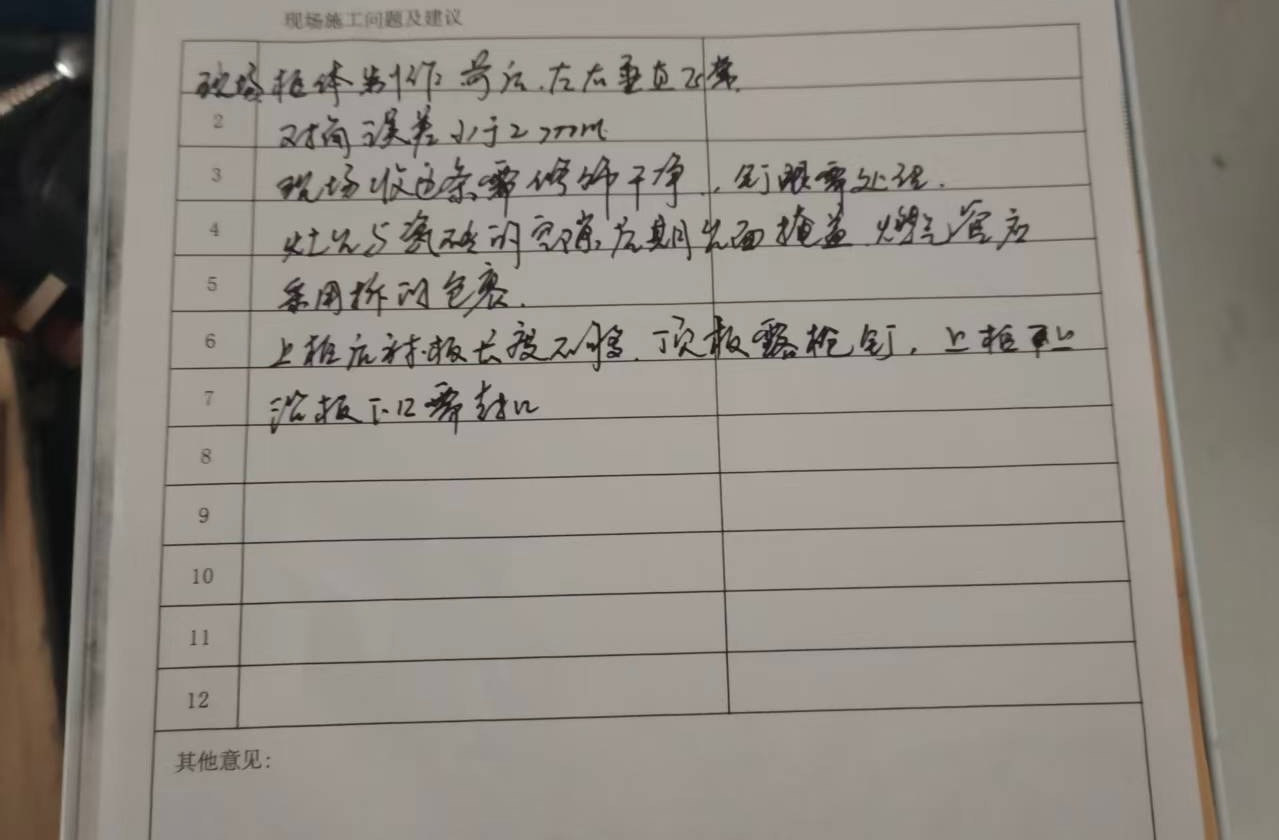 现场施工问题及建议
现场柜体制作 前后.左右垂直正常.
2 对角误差小于2mm
3 现场收边条需修饰干净,钉眼需处理.
4 灶台与瓷砖的空隙后期台面掩盖 燃气管后
5 采用拆的包裹.
6 上柜后衬板长度不够.顶板露枪钉,上柜
7 板下口需封口
8
9
10
11
12
其他意见: